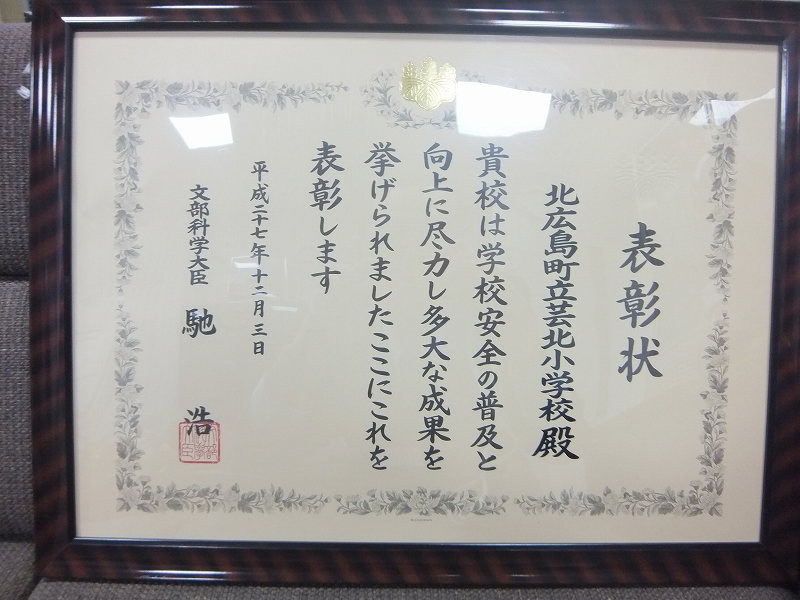 表彰状
北広島町立芸北小学校殿
貴校は学校安全の普及と
向上に尽力し多大な成果を
挙げられましたここにこれを
表彰します
平成二十七年十二月三日
文部科学大臣 馳 浩